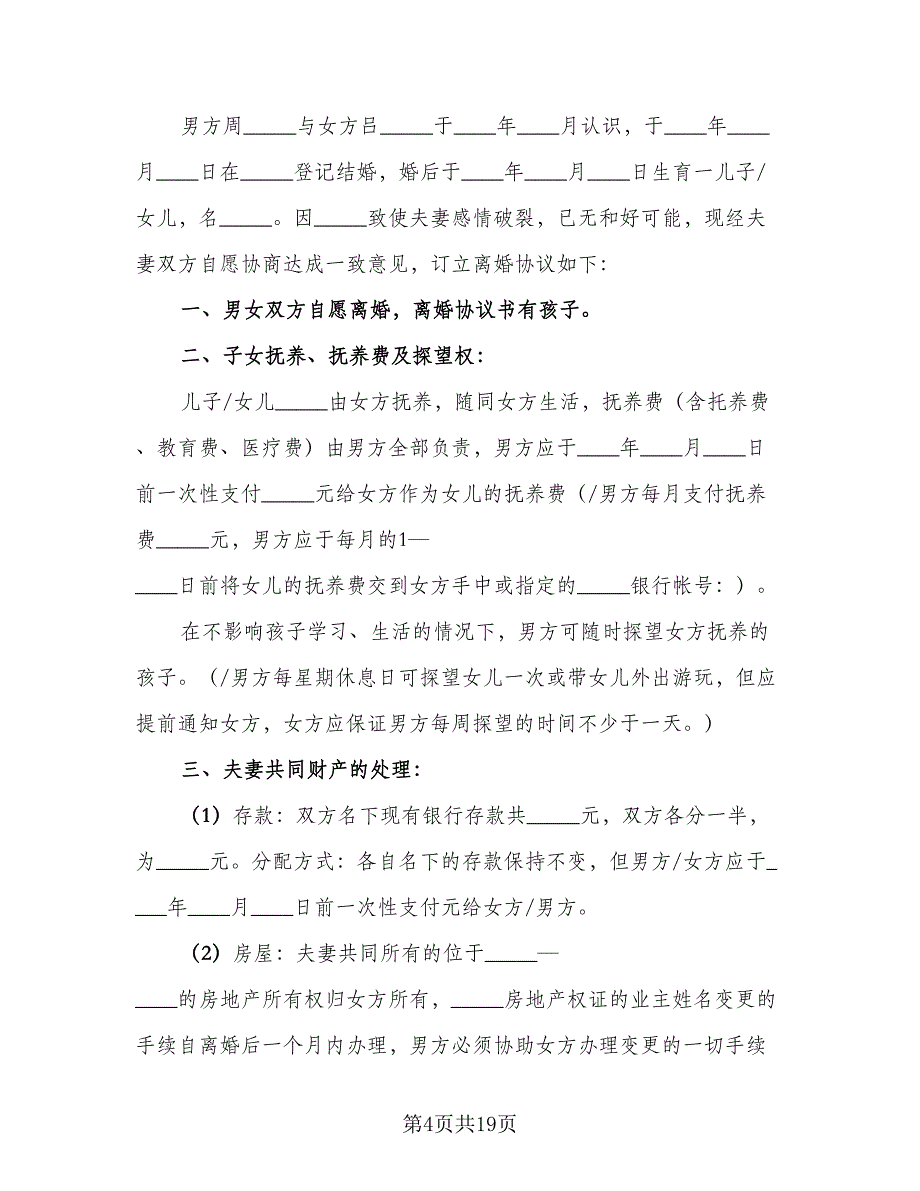 男方周_____与女方吕_____于____年____月认识，于____年____
月____日在_____登记结婚，婚后于____年____月____日生育一儿子/
女儿，名_____。因_____致使夫妻感情破裂，已无和好可能，现经夫
妻双方自愿协商达成一致意见，订立离婚协议如下：
一、男女双方自愿离婚，离婚协议书有孩子。
二、子女抚养、抚养费及探望权：
儿子/女儿_____由女方抚养，随同女方生活，抚养费（含托养费
、教育费、医疗费）由男方全部负责，男方应于____年____月____日
前一次性支付_____元给女方作为女儿的抚养费（/男方每月支付抚养
费_____元，男方应于每月的1—
____日前将女儿的抚养费交到女方手中或指定的_____银行帐号：）。
在不影响孩子学习、生活的情况下，男方可随时探望女方抚养的
孩子。（/男方每星期休息日可探望女儿一次或带女儿外出游玩，但应
提前通知女方，女方应保证男方每周探望的时间不少于一天。）
三、夫妻共同财产的处理：
（1）存款：双方名下现有银行存款共_____元，双方各分一半，
为_____元。分配方式：各自名下的存款保持不变，但男方/女方应于_
___年____月____日前一次性支付元给女方/男方。
（2）房屋：夫妻共同所有的位于_____—
____的房地产所有权归女方所有，_____房地产权证的业主姓名变更的
手续自离婚后一个月内办理，男方必须协助女方办理变更的一切手续
第4页共19页